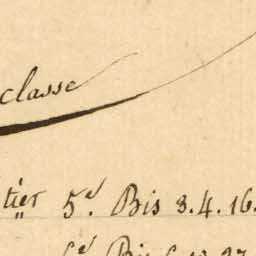 classe
tier 5e. Bis 3.4.16.
6e Bis